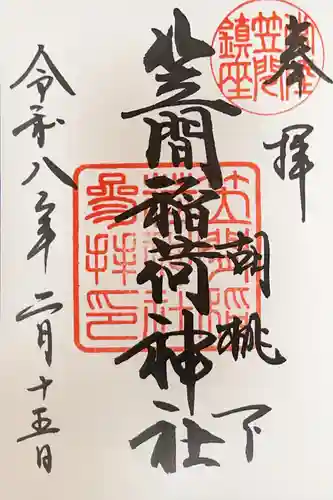 奉拝
胡桃下
笠間稲荷神社
令和八年二月十五日
笠間
鎮座
参拝